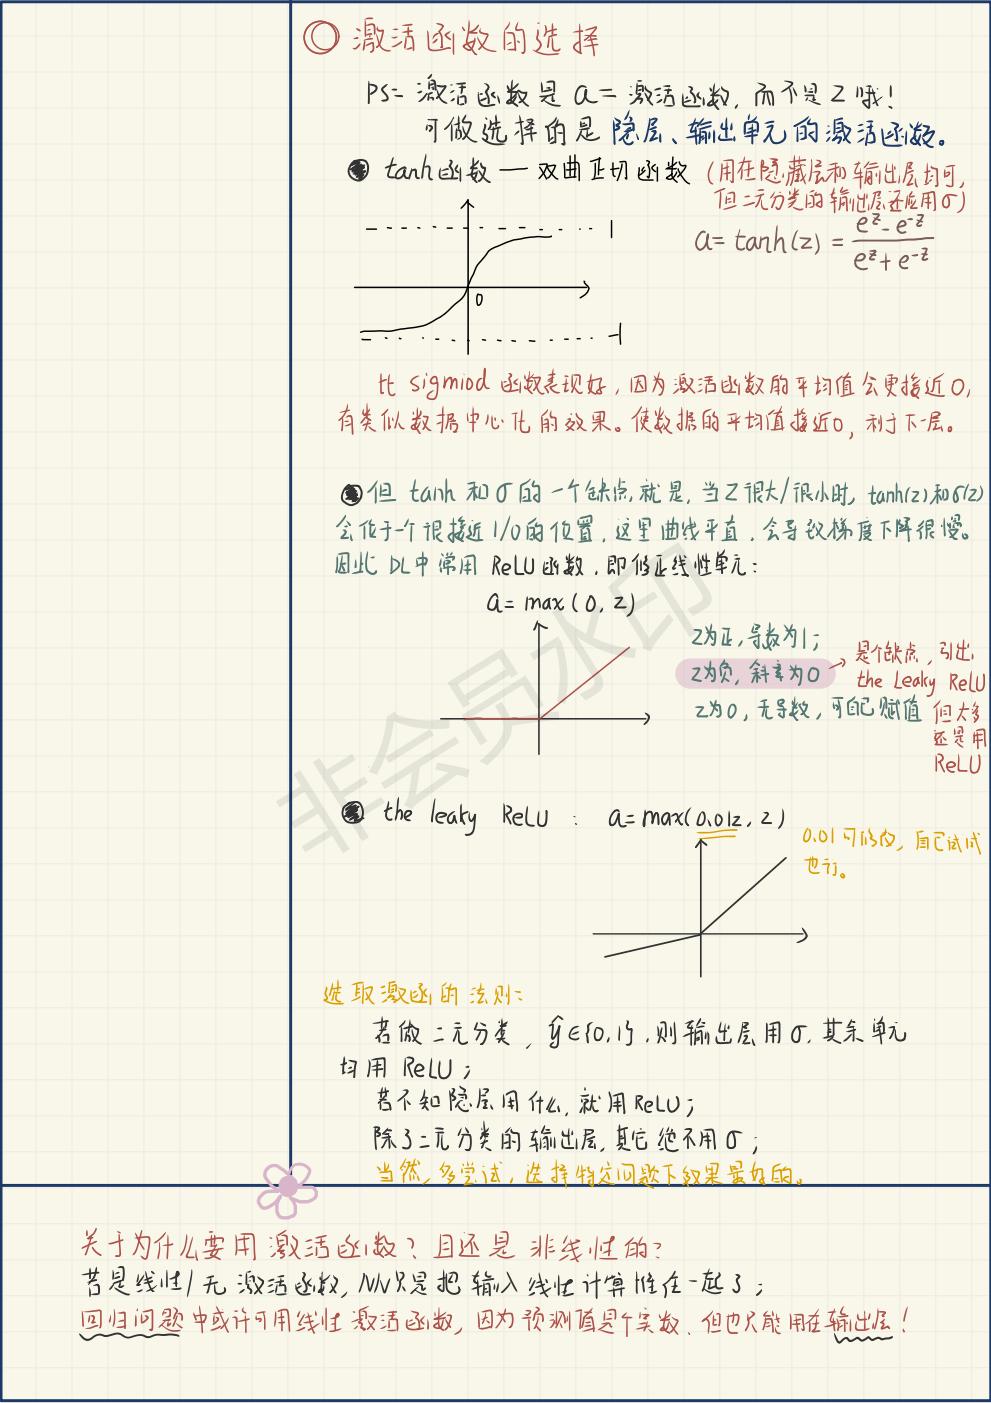 激活函数的选择
PS: 激活函数是 a = 激活函数, 而不是 z 哦!
可做选择的是 隐层、输出单元的激活函数。
tanh函数 — 双曲正切函数 (用在隐藏层和输出层均可,
但二元分类的输出层还应用σ)
a = tanh(z) = (e^z - e^-z) / (e^z + e^-z)
1
0
-1
比 sigmiod 函数表现好, 因为激活函数的平均值会更接近0,
有类似数据中心化的效果。使数据的平均值接近0, 利于下一层。
但 tanh 和 σ 的一个缺点, 就是, 当 z 很大/很小时, tanh(z)和σ(z)
会位于一个很接近 1/0 的位置, 这里曲线平直, 会导致梯度下降很慢。
因此 DL中常用 ReLU 函数, 即修正线性单元:
a = max(0, z)
z为正, 导数为1;
z为负, 斜率为0
z为0, 无导数, 可自己赋值
是个缺点, 引出
the Leaky ReLU
但大多
还是用
ReLU
the leaky ReLU : a = max(0.01z, z)
0.01可修改, 自己试试
也行。
选取激函的法则:
若做二元分类, ŷ∈{0,1}, 则输出层用σ, 其余单元
均用 ReLU;
若不知隐层用什么, 就用ReLU;
除了二元分类的输出层, 其它绝不用σ;
当然, 多尝试, 选择特定问题下效果最好的。
关于为什么要用激活函数? 且还是非线性的?
若是线性/无激活函数, NN只是把输入线性计算堆在一起了;
回归问题中或许可用线性激活函数, 因为预测值是个实数, 但也只能用在输出层!
非会员水印